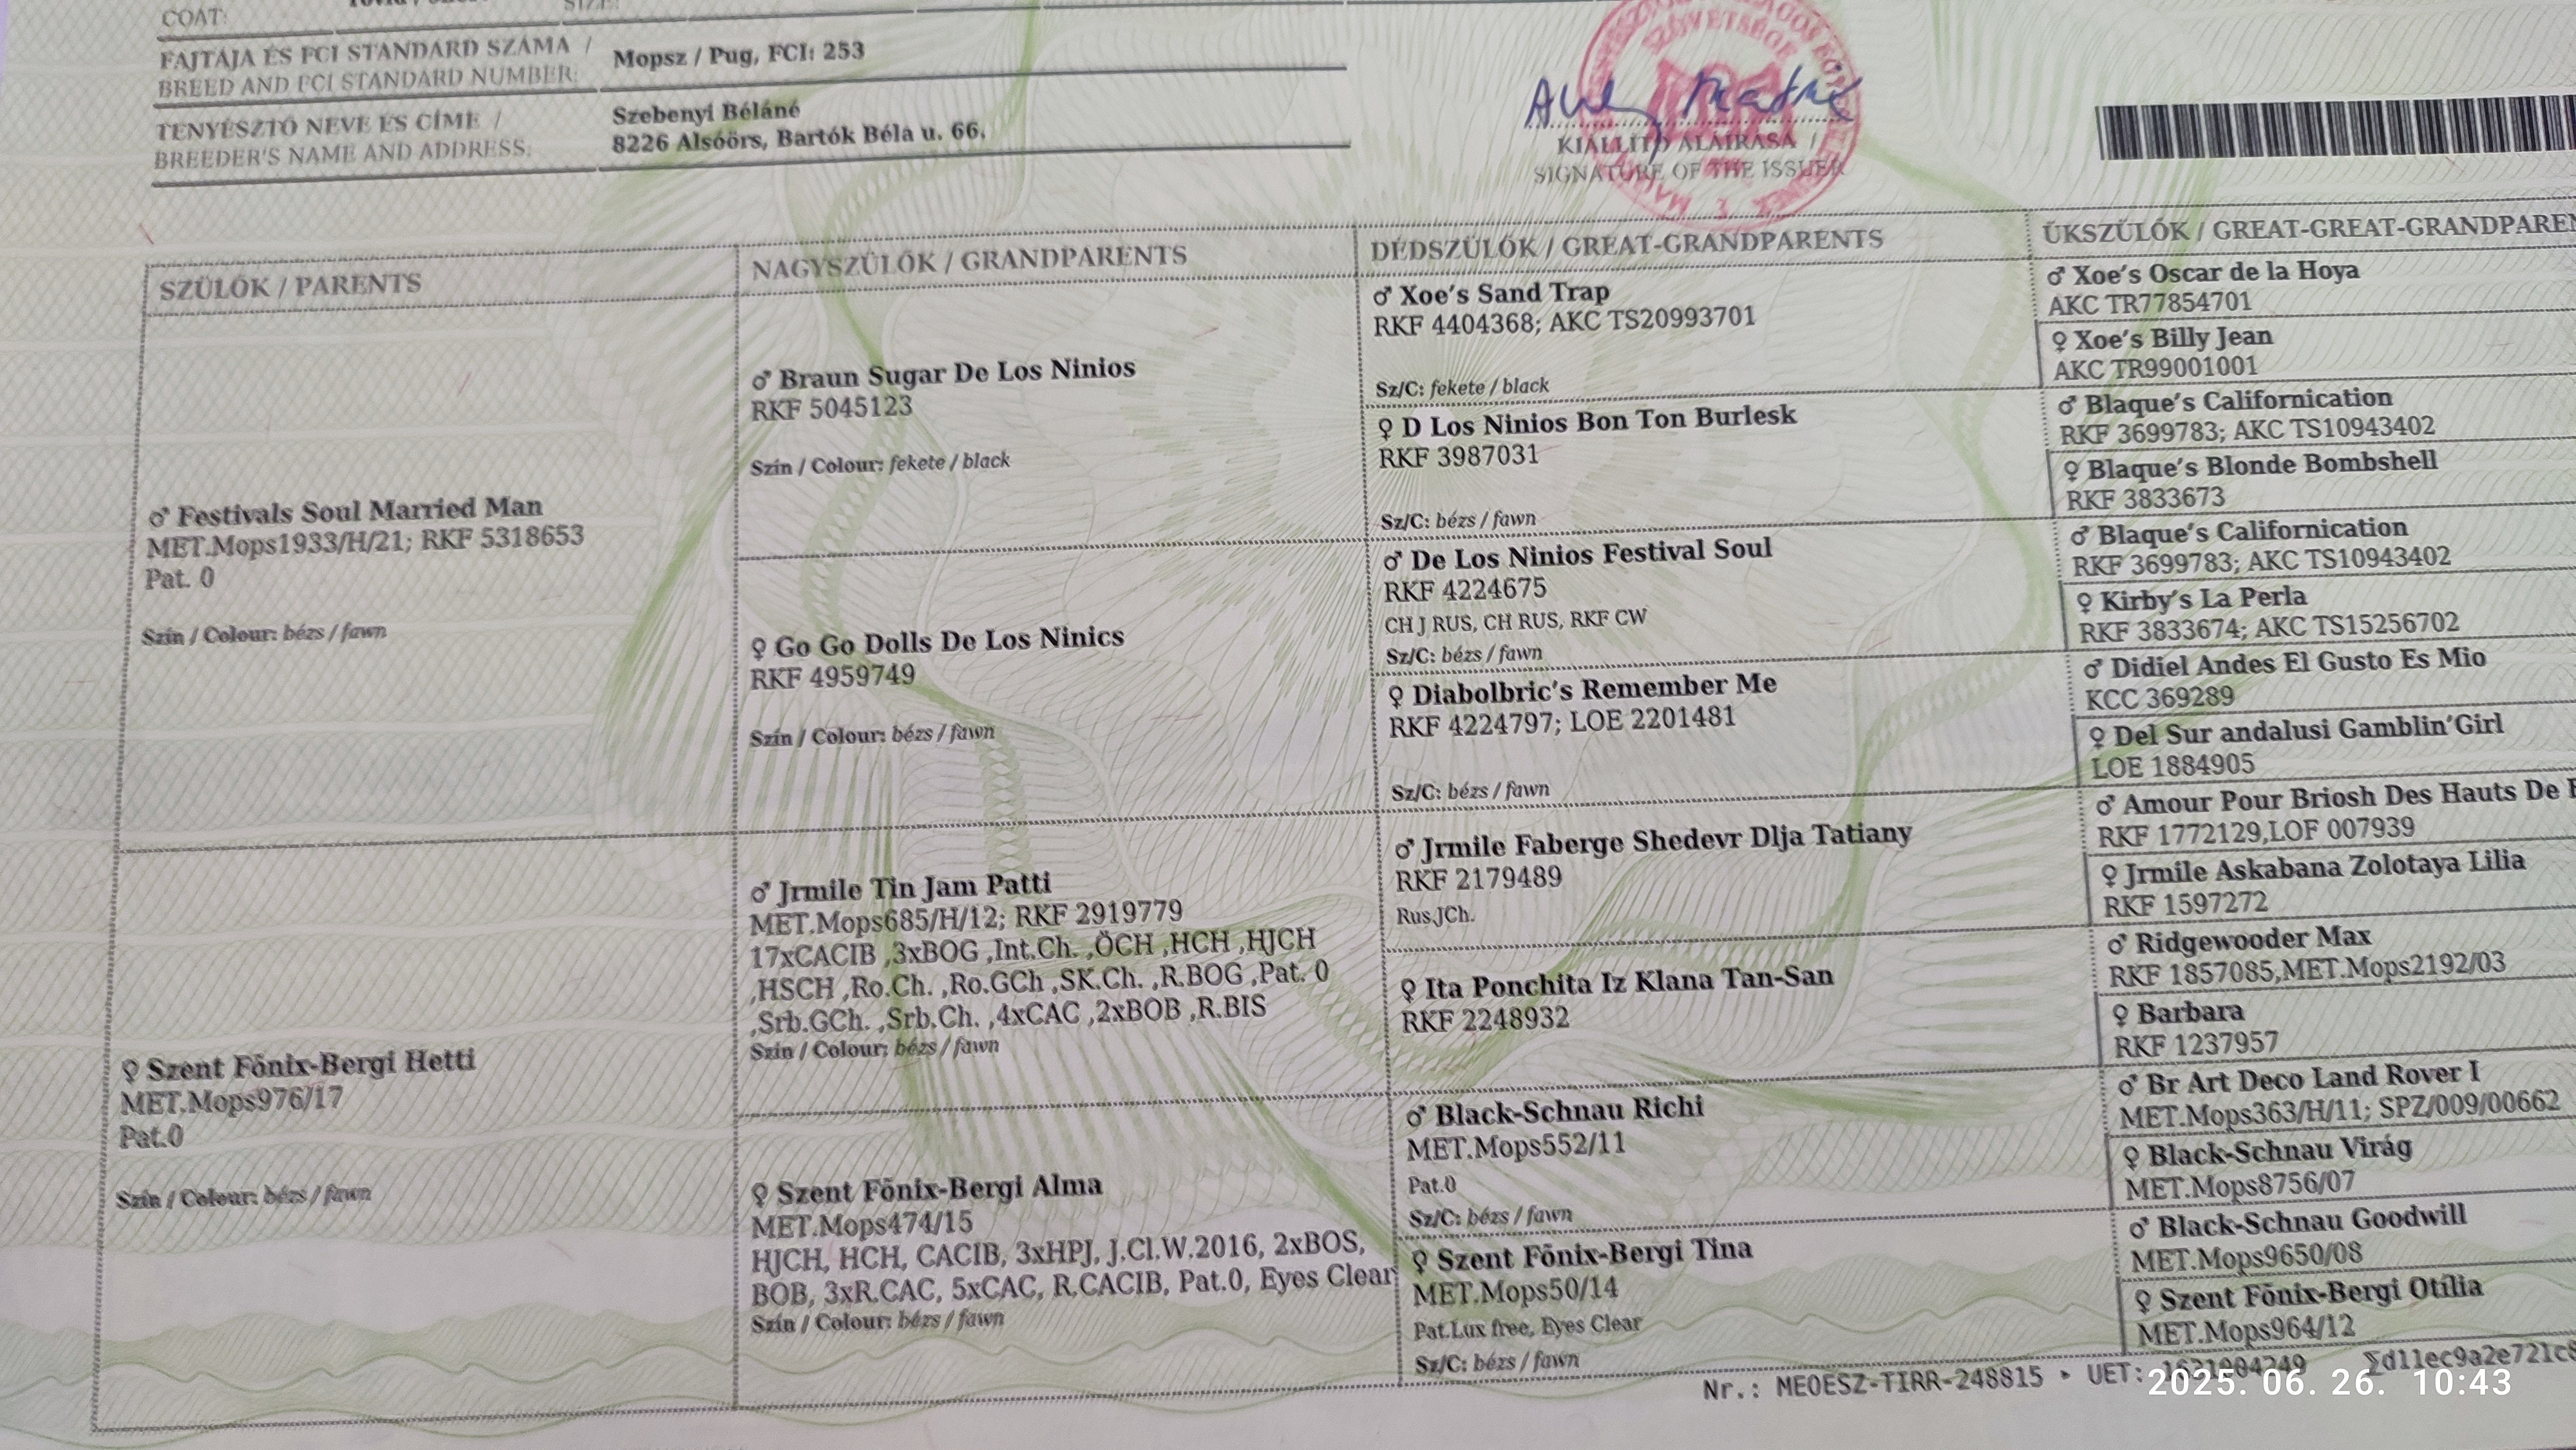 COAT:
FAJTÁJA ÉS FCI STANDARD SZÁMA /
BREED AND FCI STANDARD NUMBER:
Mopsz / Pug, FCI: 253
TENYÉSZTŐ NEVE ÉS CÍME /
BREEDER'S NAME AND ADDRESS:
Szebenyi Béláné
8226 Alsóörs, Bartók Béla u. 66.
SZÖVETSÉGE
KIÁLLÍTÓ ALÁÍRÁSA /
SIGNATURE OF THE ISSUER
SZÜLŐK / PARENTS
♂ Festivals Soul Married Man
MET.Mops1933/H/21; RKF 5318653
Pat. 0
Szín / Colour: bézs / fawn
♀ Szent Főnix-Bergi Hetti
MET.Mops976/17
Pat.0
Szín / Colour: bézs / fawn
NAGYSZÜLŐK / GRANDPARENTS
♂ Braun Sugar De Los Ninios
RKF 5045123
Szín / Colour: fekete / black
♀ Go Go Dolls De Los Ninics
RKF 4959749
Szín / Colour: bézs / fawn
♂ Jrmile Tin Jam Patti
MET.Mops685/H/12; RKF 2919779
17xCACIB ,3xBOG ,Int.Ch. ,ÖCH ,HCH ,HJCH
,HSCH ,Ro.Ch. ,Ro.GCh ,SK.Ch. ,R.BOG ,Pat. 0
,Srb.GCh. ,Srb.Ch. ,4xCAC ,2xBOB ,R.BIS
Szín / Colour: bézs / fawn
♀ Szent Főnix-Bergi Alma
MET.Mops474/15
HJCH, HCH, CACIB, 3xHPJ, J.Cl.W.2016, 2xBOS,
BOB, 3xR.CAC, 5xCAC, R.CACIB, Pat.0, Eyes Clear
Szín / Colour: bézs / fawn
DÉDSZÜLŐK / GREAT-GRANDPARENTS
♂ Xoe's Sand Trap
RKF 4404368; AKC TS20993701
Sz/C: fekete / black
♀ D Los Ninios Bon Ton Burlesk
RKF 3987031
Sz/C: bézs / fawn
♂ De Los Ninios Festival Soul
RKF 4224675
CH J RUS, CH RUS, RKF CW
Sz/C: bézs / fawn
♀ Diabolbric's Remember Me
RKF 4224797; LOE 2201481
Sz/C: bézs / fawn
♂ Jrmile Faberge Shedevr Dlja Tatiany
RKF 2179489
Rus.JCh.
♀ Ita Ponchita Iz Klana Tan-San
RKF 2248932
♂ Black-Schnau Richi
MET.Mops552/11
Pat.0
Sz/C: bézs / fawn
♀ Szent Főnix-Bergi Tina
MET.Mops50/14
Pat.Lux free, Eyes Clear
Sz/C: bézs / fawn
ÜKSZÜLŐK / GREAT-GREAT-GRANDPAREN
♂ Xoe's Oscar de la Hoya
AKC TR77854701
♀ Xoe's Billy Jean
AKC TR99001001
♂ Blaque's Californication
RKF 3699783; AKC TS10943402
♀ Blaque's Blonde Bombshell
RKF 3833673
♂ Blaque's Californication
RKF 3699783; AKC TS10943402
♀ Kirby's La Perla
RKF 3833674; AKC TS15256702
♂ Didiel Andes El Gusto Es Mio
KCC 369289
♀ Del Sur andalusi Gamblin'Girl
LOE 1884905
♂ Amour Pour Briosh Des Hauts De
RKF 1772129,LOF 007939
♀ Jrmile Askabana Zolotaya Lilia
RKF 1597272
♂ Ridgewooder Max
RKF 1857085,MET.Mops2192/03
♀ Barbara
RKF 1237957
♂ Br Art Deco Land Rover I
MET.Mops363/H/11; SPZ/009/00662
♀ Black-Schnau Virág
MET.Mops8756/07
♂ Black-Schnau Goodwill
MET.Mops9650/08
♀ Szent Főnix-Bergi Otília
MET.Mops964/12
Nr.: MEOESZ-TIRR-248815 ▸ UET: Σd11ec9a2e721c8
2025. 06. 26. 10:43